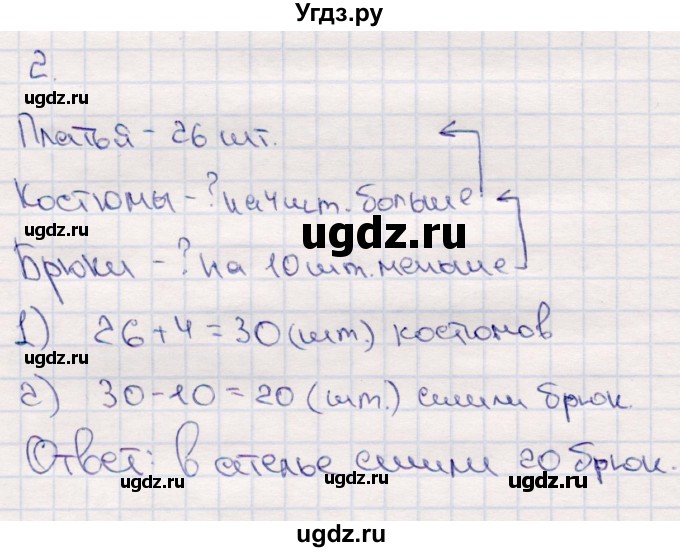 Угдз.ру
2.
ugdz.ru
ugdz.ru
Платья - 26 шт.
ugdz.ru
Костюмы - ? на 4 шт. больше
ugdz.ru
ugdz.ru
Брюки - ? на 10 шт. меньше
1) 26 + 4 = 30 (шт.) костюмов
ugdz.ru
ugdz.ru
2) 30 - 10 = 20 (шт.) сшили брюк.
Ответ: в ателье сшили 20 брюк.
ugdz.ru
ugdz.ru
ugdz.ru